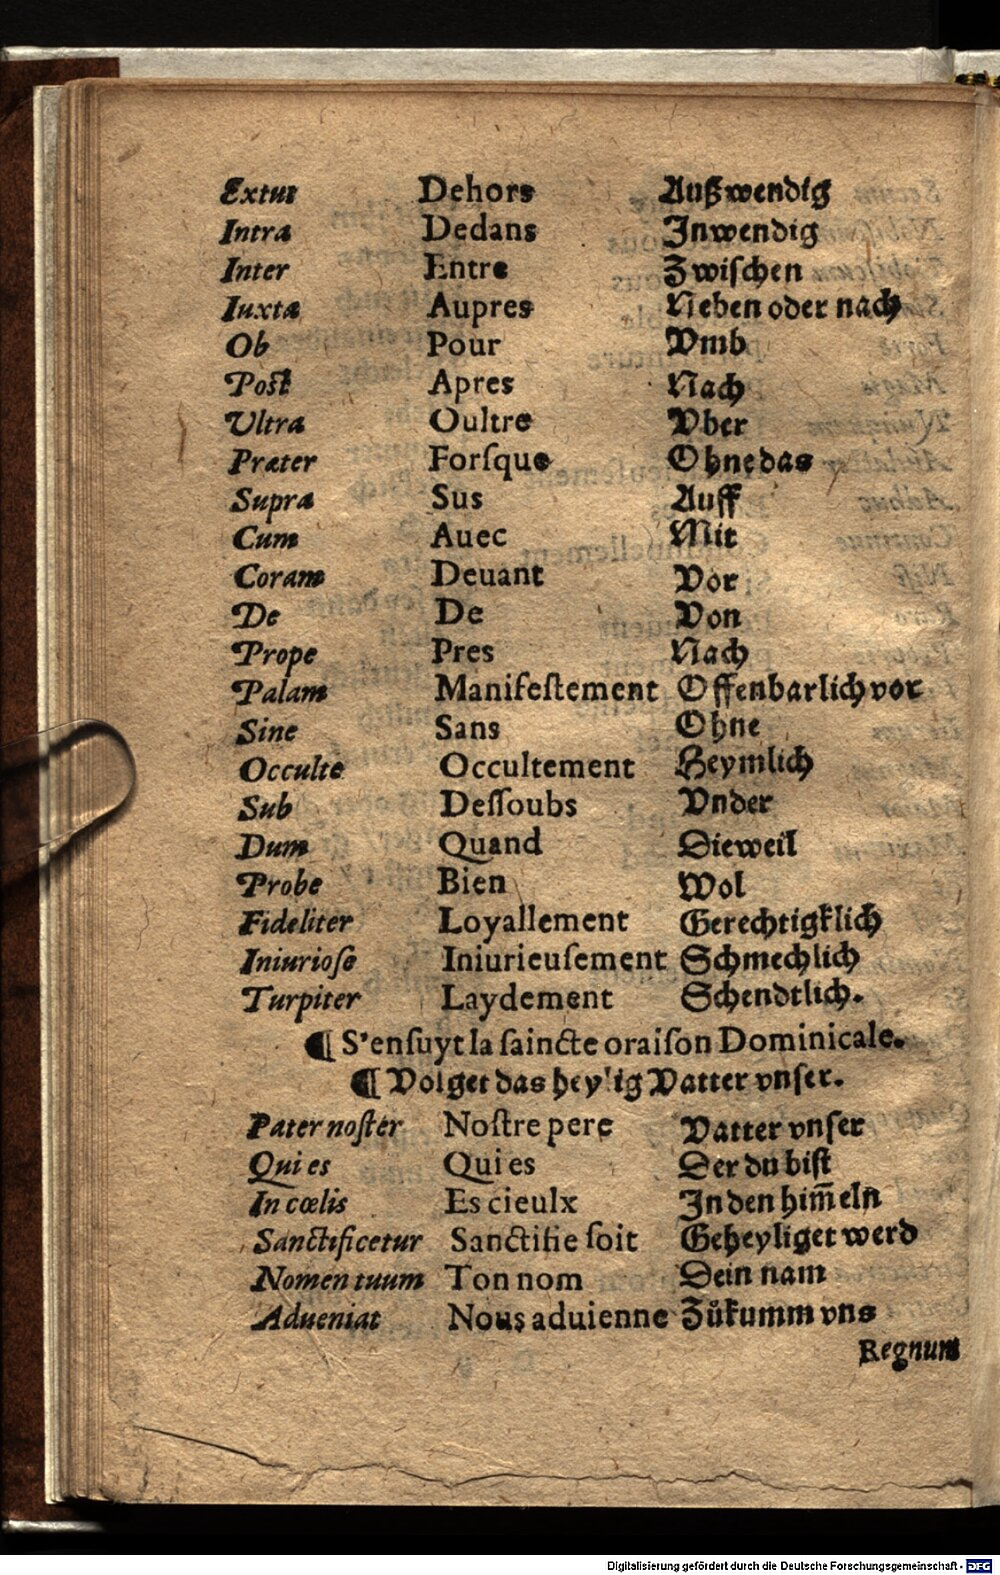 Extut Dehors Außwendig
Intra Dedans Jnwendig
Inter Entre Zwiſchen
Iuxta Aupres Neben oder nach
Ob Pour Vmb
Poſt Apres Nach
Ultra Oultre Vber
Præter Forſque Ohnedas
Supra Sus Auff
Cum Auec Mit
Coram Deuant Vor
De De Von
Prope Pres Nach
Palam Manifeſtement Offenbarlich vor
Sine Sans Ohne
Occulte Occultement Heymlich
Sub Deſſoubs Vnder
Dum Quand Dieweil
Probe Bien Wol
Fideliter Loyallement Gerechtigklich
Iniurioſe Iniurieuſement Schmechlich
Turpiter Laydement Schendtlich.
¶ S'enſuyt la ſaincte oraiſon Dominicale.
¶ Volget das heylig Vatter vnſer.
Pater noſter Noſtre pere Vatter vnſer
Qui es Qui es Der du biſt
In cœlis Es cieulx Jn den him̄eln
Sanctificetur Sanctifie ſoit Geheyliget werd
Nomen tuum Ton nom Dein nam
Adueniat Nous aduienne Zůkumm vns
Regnum
Digitalisierung gefördert durch die Deutsche Forschungsgemeinschaft - DFG